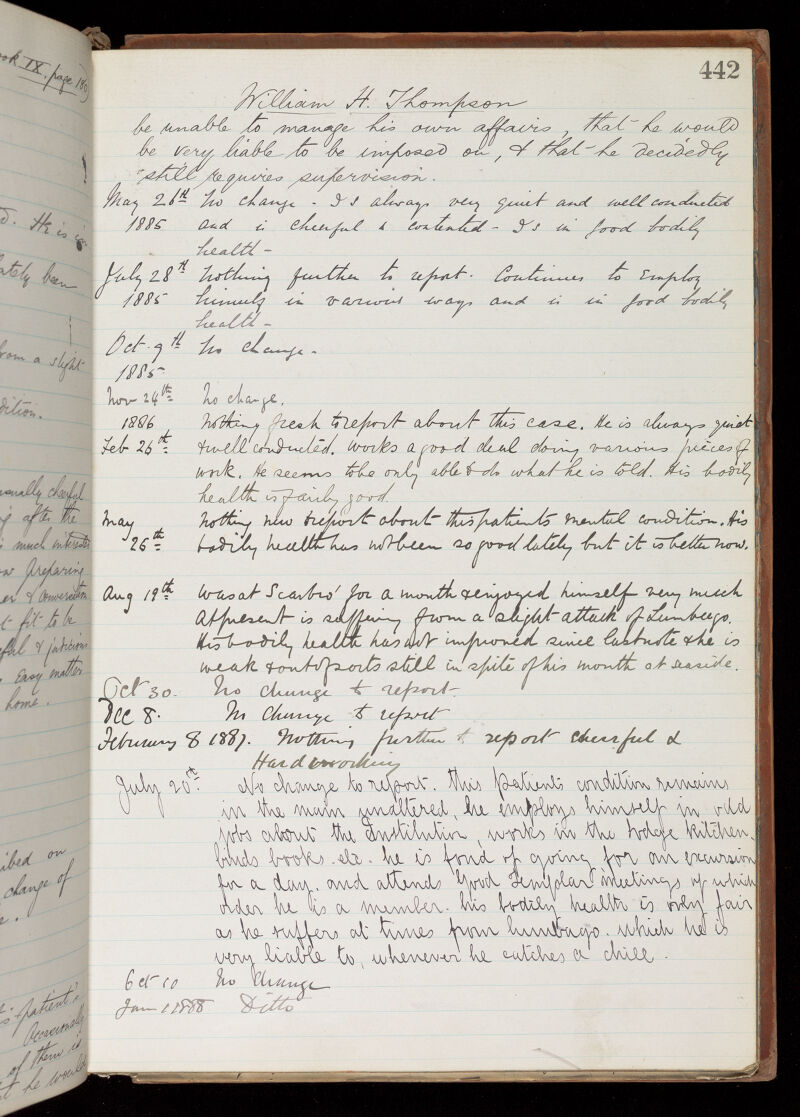 ook IX. page 180
442
William H. Thompson
be unable to manage his own affairs, that he would
be very liable to be imposed on, & that he decidedly
still requires supervision.
May 26th No change - Is always very quiet and well conducted
1885 and is cheerful & contented - Is in good bodily
health -
July 28th Nothing further to report. Continues to employ
1885 himself in various ways and is in good bodily
health -
Oct. 9th No change -
1885
Nov 24th No change.
1886 Nothing fresh to report about this case. He is always quiet
Feb 26th & well conducted. works a good deal doing various pieces of
work. He seems to be only able to do what he is told. His bodily
health is fairly good.
May Nothing new to report about this patients mental condition. His
26th bodily health has not been so good lately but it is better now.
Aug 19th was at Scarbro' for a month & enjoyed himself very much
At present is suffering from a slight attack of Lumbago.
His bodily health has not improved since last note & he is
weak & out of sorts still in spite of his month at seaside.
Oct 30. No change to report.
Dec 8. No change to report
February 8 1887. Nothing further to report cheerful &
Hardworking
July 20t. No change to report. This patients condition remains
in the main unaltered, he employs himself in odd
jobs about the Institution, works in the lodge kitchen,
binds books. etc. he is fond of going for an excursion
for a day. and attends Good Templar meetings of which
order he is a member. his bodily health is only fair
as he suffers at times from lumbago. which he is
very liable to, whenever he catches a chill.
Oct 10 No change
Jan 1 1888 Ditto